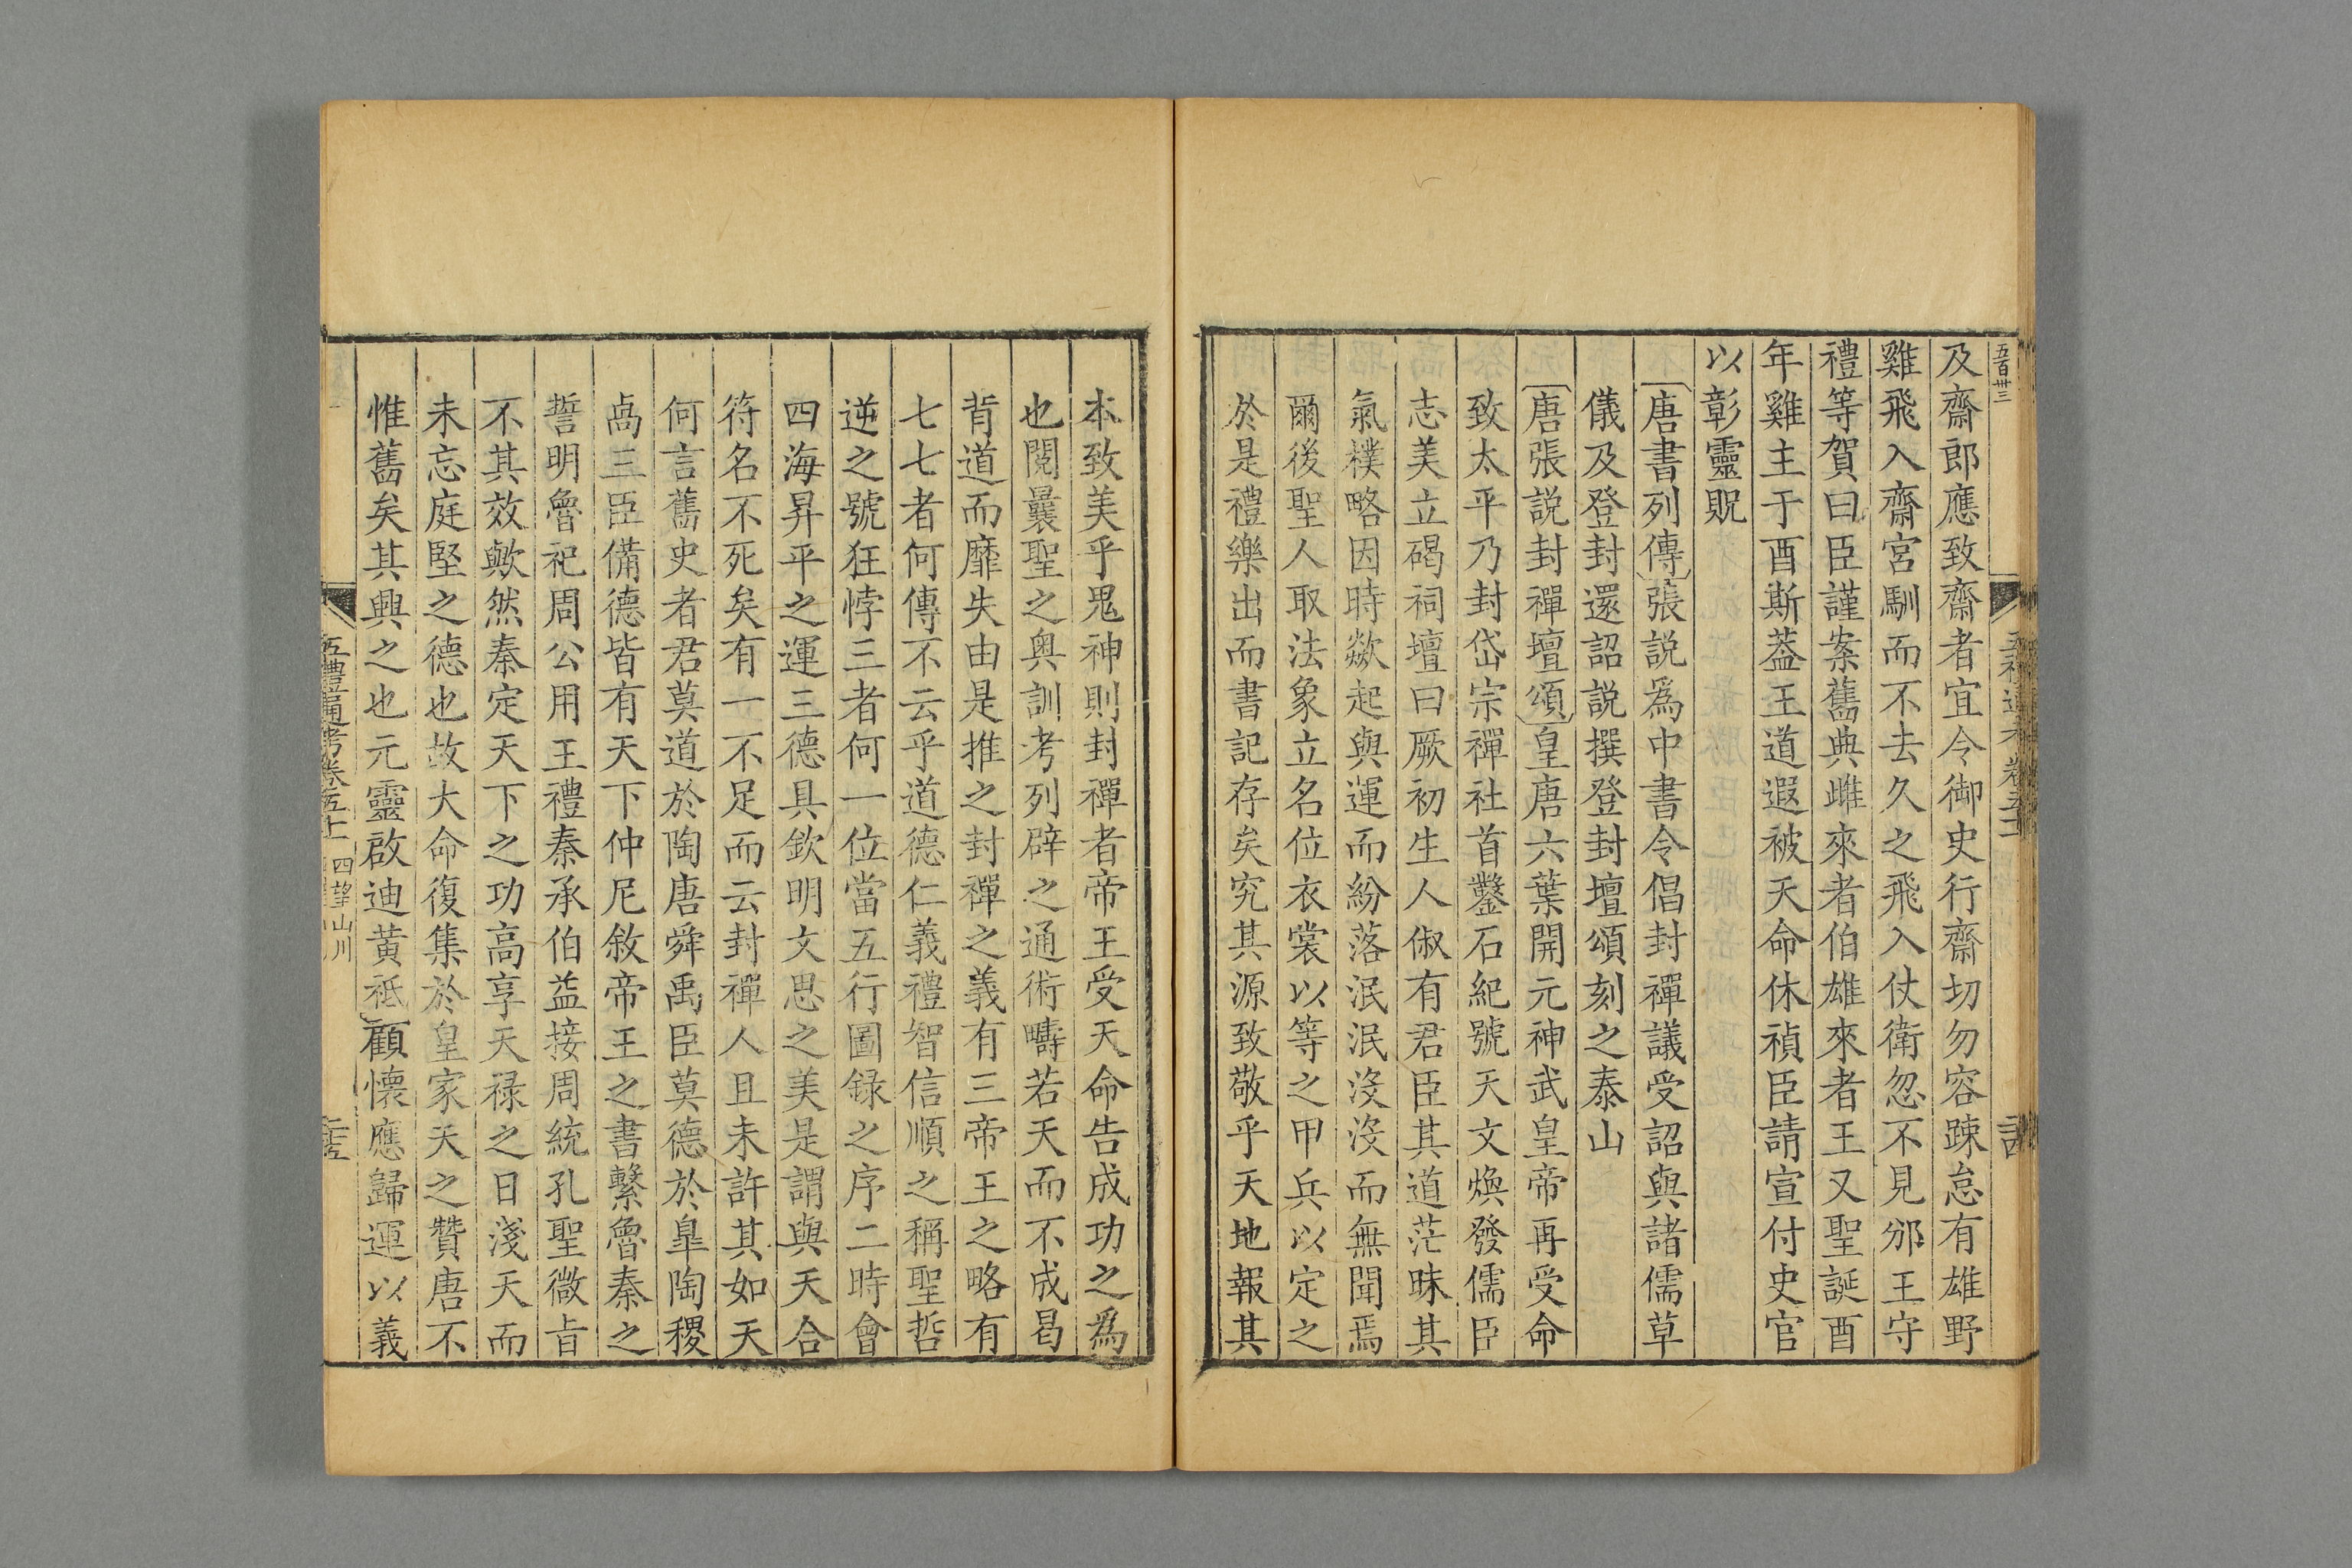 五百卅三
及齋郎應致齋者宜令御史行齋切勿容踈怠有雄野
雞飛入齋宮馴而不去久之飛入仗衛忽不見邠王守
禮等賀曰臣謹案舊典雌來者伯雄來者王又聖誕酉
年雞主于酉斯葢王道遐被天命休禎臣請宣付史官
以彰靈貺
〔唐書列傳〕張説爲中書令倡封禪議受詔與諸儒草
儀及登封還詔説撰登封壇頌刻之泰山
〔唐張説封禪壇頌〕皇唐六葉開元神武皇帝再受命
致太平乃封岱宗禪社首鑿石紀號天文煥發儒臣
志美立碣祠壇曰厥初生人俶有君臣其道茫昧其
氣樸略因時歘起與運而紛落泯泯沒沒而無聞焉
爾後聖人取法象立名位衣裳以等之甲兵以定之
於是禮樂出而書記存矣究其源致敬乎天地報其
本致美乎鬼神則封禪者帝王受天命告成功之爲
也閱曩聖之奥訓考列辟之通術疇若天而不成曷
背道而靡失由是推之封禪之義有三帝王之略有
七七者何傳不云乎道德仁義禮智信順之稱聖哲
逆之號狂悖三者何一位當五行圖録之序二時會
四海昇平之運三德具欽明文思之美是謂與天合
符名不死矣有一不足而云封禪人且未許其如天
何言舊史者君莫道於陶唐舜禹臣莫德於臯陶稷
卨三臣備德皆有天下仲尼敘帝王之書繫魯秦之
誓明魯祀周公用王禮秦承伯益接周統孔聖微旨
不其效歟然秦定天下之功高享天禄之日淺天而
未忘庭堅之德也故大命復集於皇家天之贊唐不
惟舊矣其興之也元靈啟迪黄祗顧懷應歸運以義
五禮通考卷五上 四望山川